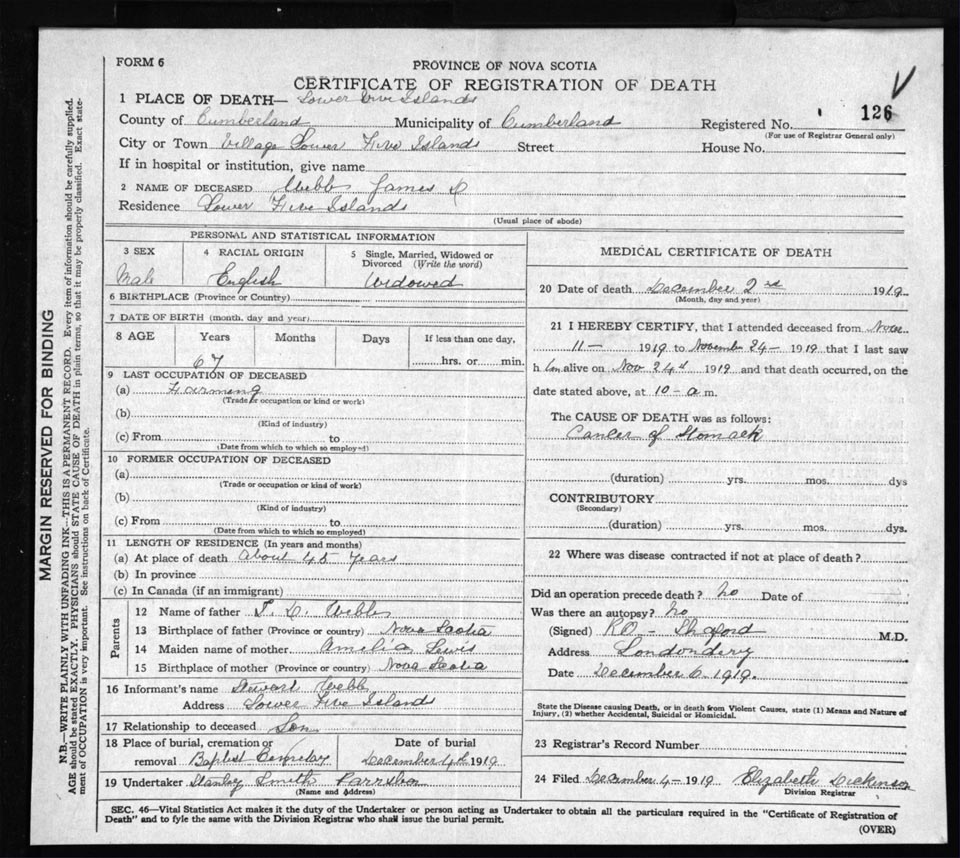 FORM 6
PROVINCE OF NOVA SCOTIA
CERTIFICATE OF REGISTRATION OF DEATH
1 PLACE OF DEATH— Lower Five Islands
County of Cumberland Municipality of Cumberland Registered No. 126
(For use of Registrar General only)
City or Town Village Lower Five Islands Street House No.
If in hospital or institution, give name
2 NAME OF DECEASED Webb James
Residence Lower Five Islands
(Usual place of abode)
PERSONAL AND STATISTICAL INFORMATION
3 SEX 4 RACIAL ORIGIN 5 Single, Married, Widowed or
Divorced (Write the word)
Male English Widowed
6 BIRTHPLACE (Province or Country)
7 DATE OF BIRTH (month, day and year)
8 AGE Years Months Days If less than one day,
67 hrs. or min.
9 LAST OCCUPATION OF DECEASED
(a) Farming
(Trade or occupation or kind or work)
(b)
(Kind of industry)
(c) From to
(Date from which to which so employed)
10 FORMER OCCUPATION OF DECEASED
(a)
(Trade or occupation or kind of work)
(b)
(Kind of industry)
(c) From to
(Date from which to which so employed)
11 LENGTH OF RESIDENCE (In years and months)
(a) At place of death About 45 Years
(b) In province
(c) In Canada (if an immigrant)
Parents
12 Name of father Webb
13 Birthplace of father (Province or country) Nova Scotia
14 Maiden name of mother. Amelia Lewis
15 Birthplace of mother (Province or country) Nova Scotia
16 Informant's name Stewart Webb
Address Lower Five Islands
17 Relationship to deceased Son
18 Place of burial, cremation or Date of burial
removal Baptist Cemetery December 4th 1919
19 Undertaker Stanley Smith Parrsboro
(Name and Address)
MEDICAL CERTIFICATE OF DEATH
20 Date of death December 2nd 1919
(Month, day and year)
21 I HEREBY CERTIFY, that I attended deceased from Nov
11— 1919 to November 24— 1919 that I last saw
him alive on Nov 24th 1919 and that death occurred, on the
date stated above, at 10—a m.
The CAUSE OF DEATH was as follows:
Cancer of Stomack
(duration) yrs. mos. dys
CONTRIBUTORY
(Secondary)
(duration) yrs. mos. dys.
22 Where was disease contracted if not at place of death?
Did an operation precede death? No Date of
Was there an autopsy? No
(Signed) M.D.
Address Londonderry
Date December 6 1919.
State the Disease causing Death, or in death from Violent Causes, state (1) Means and Nature of
Injury, (2) whether Accidental, Suicidal or Homicidal.
23 Registrar's Record Number
24 Filed December 4—1919 Elizabeth Dickinson
Division Registrar
SEC. 46—Vital Statistics Act makes it the duty of the Undertaker or person acting as Undertaker to obtain all the particulars required in the "Certificate of Registration of
Death" and to fyle the same with the Division Registrar who shall issue the burial permit.
(OVER)
MARGIN RESERVED FOR BINDING
N.B.—WRITE PLAINLY WITH UNFADING INK—THIS IS A PERMANENT RECORD. Every item of information should be carefully supplied.
AGE should be stated EXACTLY. PHYSICIANS should STATE CAUSE OF DEATH in plain terms, so that it may be properly classified. Exact state-
ment of OCCUPATION is very important. See instructions on back of Certificate.